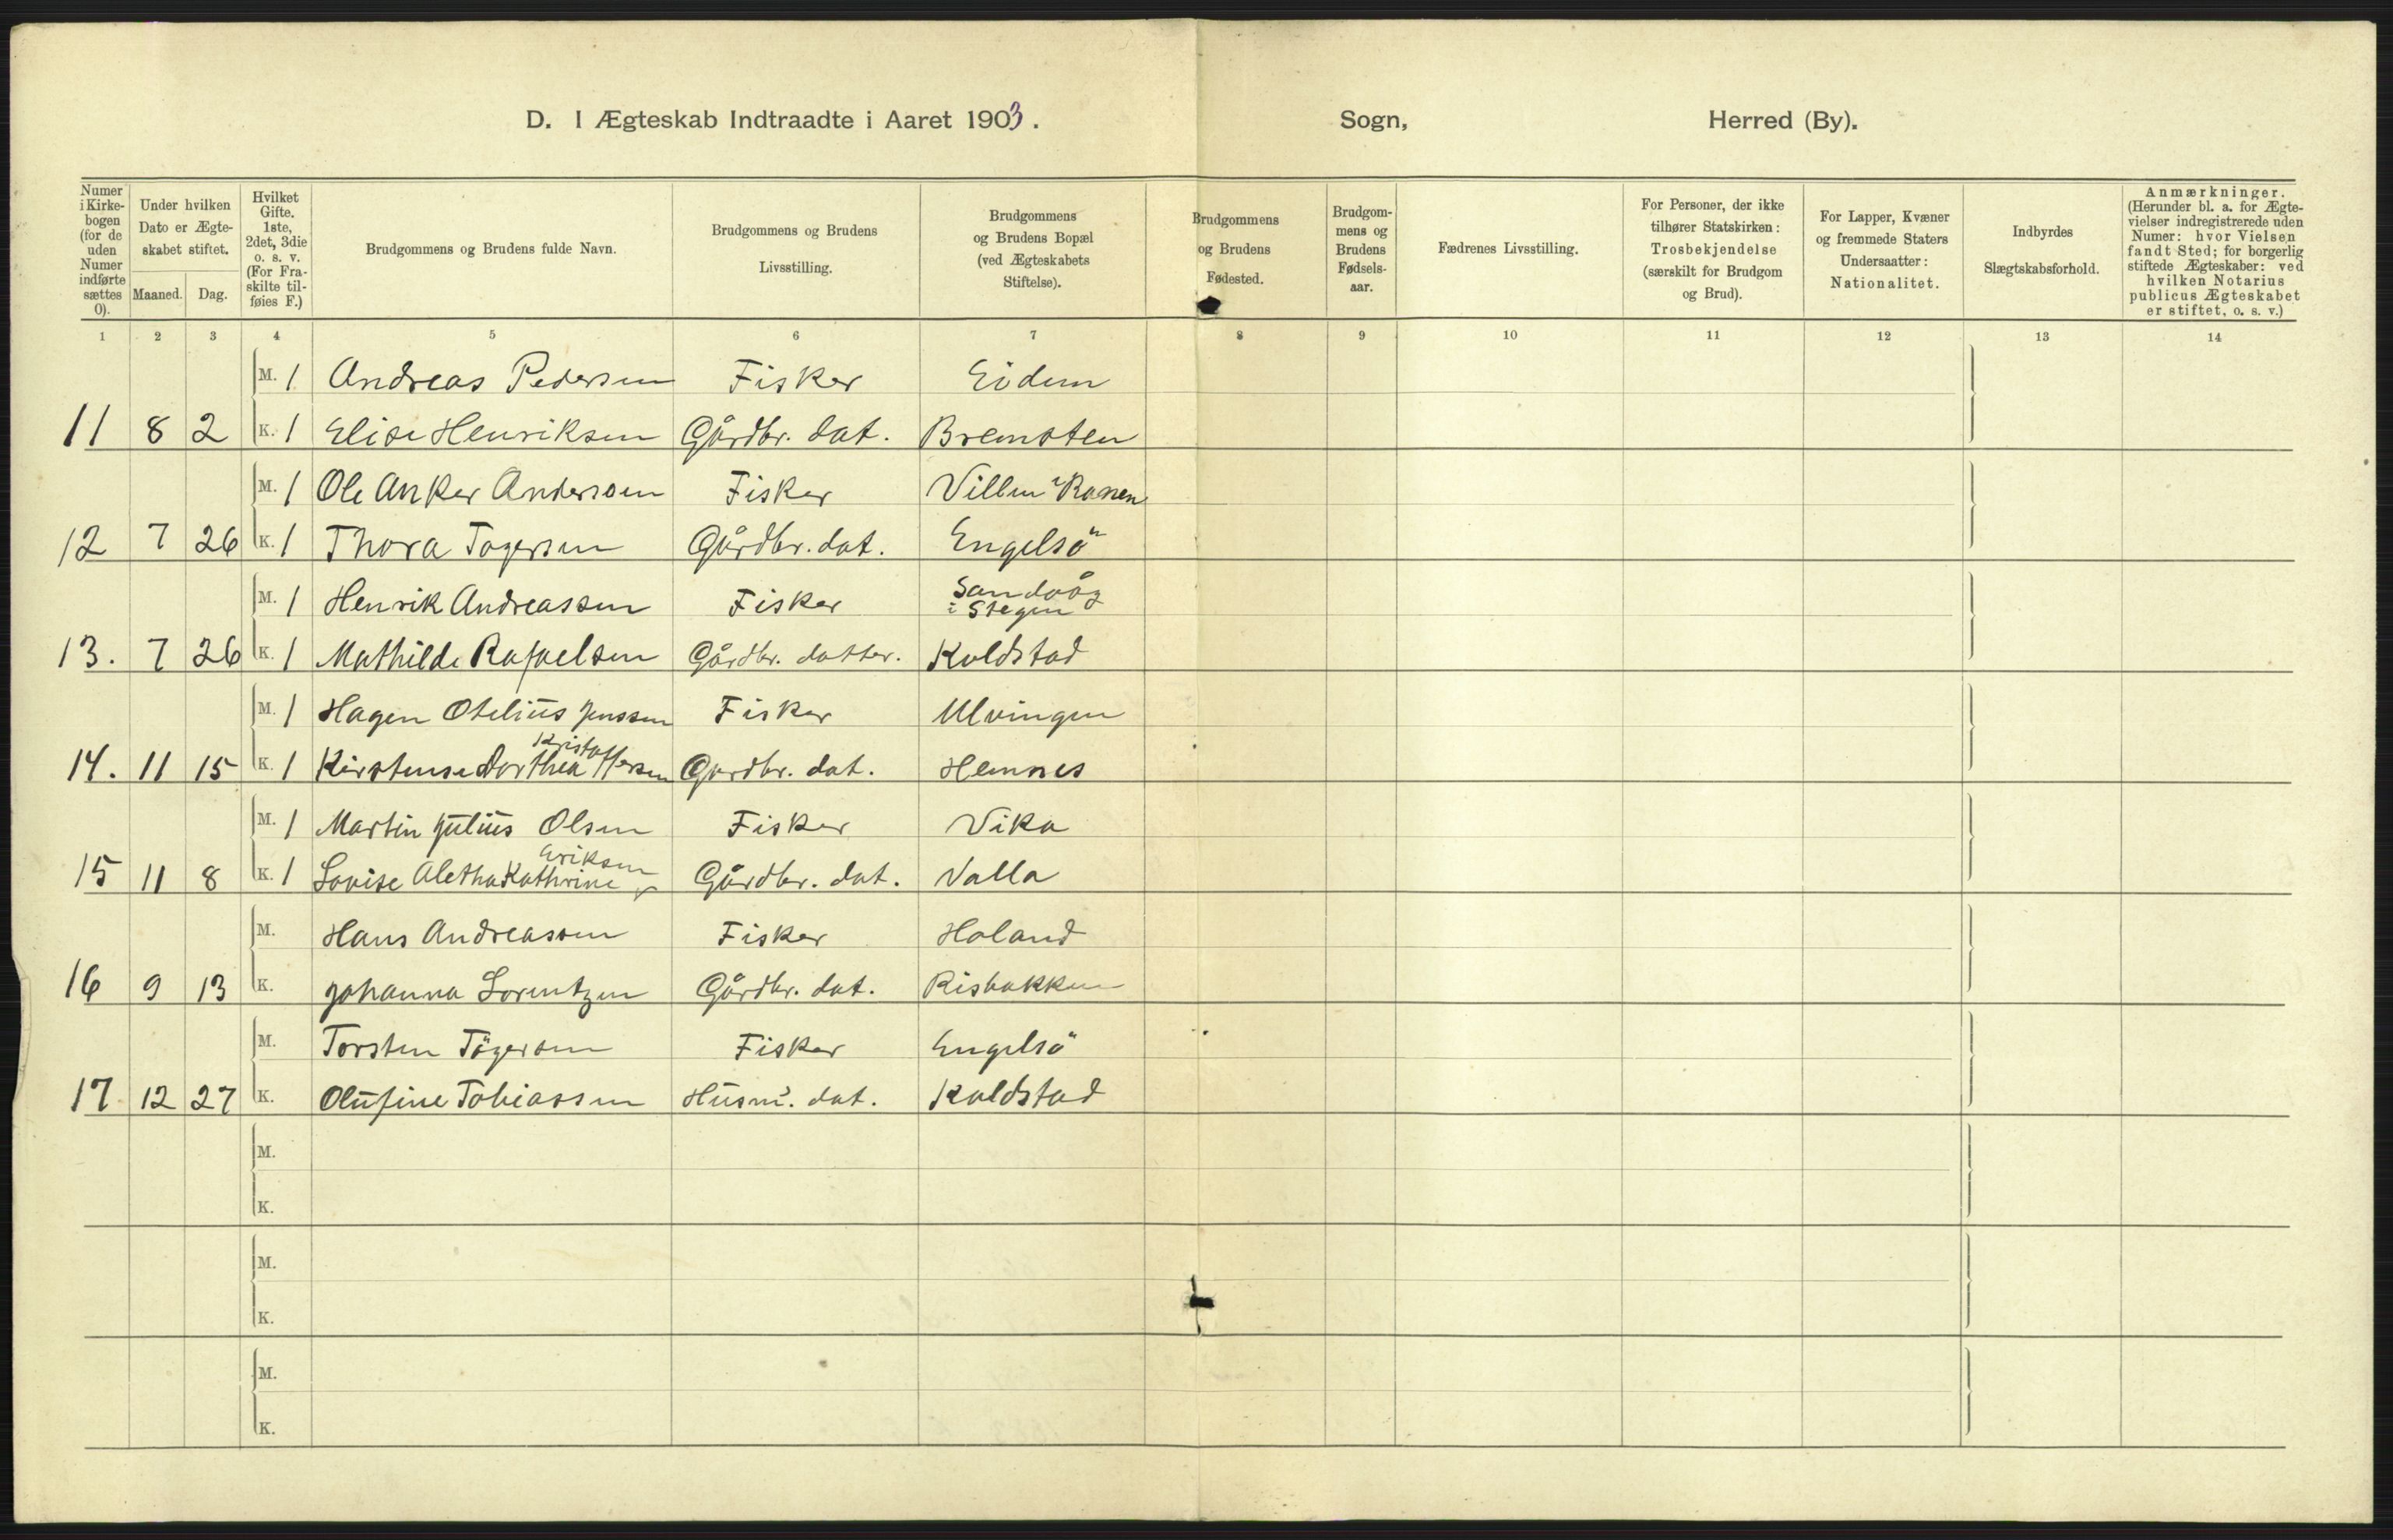 D. I Ægteskab Indtraadte i Aaret 1903. Sogn, Herred (By).
Numer i Kirkebogen (for de uden Numer indførte sættes 0).
Under hvilken Dato er Ægteskabet stiftet.
Maaned. Dag.
Hvilket Gifte. 1ste, 2det, 3die o. s. v. (For Fraskilte tilføies F.)
Brudgommens og Brudens fulde Navn.
Brudgommens og Brudens Livsstilling.
Brudgommens og Brudens Bopæl (ved Ægteskabets Stiftelse).
Brudgommens og Brudens Fødested.
Brudgommens og Brudens Fødselsaar.
Fædrenes Livsstilling.
For Personer, der ikke tilhører Statskirken: Trosbekjendelse (særskilt for Brudgom og Brud).
For Lapper, Kvæner og fremmede Staters Undersaatter: Nationalitet.
Indbyrdes Slægtskabsforhold.
Anmærkninger. (Herunder bl. a. for Ægtevielser indregistrerede uden Numer: hvor Vielsen fandt Sted; for borgerlig stiftede Ægteskaber: ved hvilken Notarius publicus Ægteskabet er stiftet, o. s. v.)
1 2 3 4 5 6 7 8 9 10 11 12 13 14
M. 1 Andreas Pedersen Fisker Eidem
11 8 2 K. 1 Elise Henriksen Gårdbr. dat. Bremsten
M. 1 Ole Anker Andersen Fisker Ranen
12 7 26 K. 1 Thora Tøgersen Gårdbr. dat. Engelsö
M. 1 Henrik Andreassen Fisker Sandvåg i Stegen
13. 7 26 K. 1 Mathilde Rafaelsen Gårdbr. datter. Koldstad
M. 1 Hagen Otelius Jenssen Fisker Ulvingen
14. 11 15 K. 1 Kirstense Dorthea Kristoffersen Gardbr. dat. Hemnes
M. 1 Martin Julius Olsen Fisker Vika
15 11 8 K. 1 Lovise Aletha Kathrine Eriksen Gårdbr. dat. Valla
M. Hans Andreassen Fisker Holand
16 9 13 K. Johanna Lorentzen Gårdbr. dat. Risbakken
M. Torsten Tögersen Fisker Engelsö
17 12 27 K. Olufine Tobiassen Husm. dat. Koldstad
M.
K.
M.
K.
M.
K.